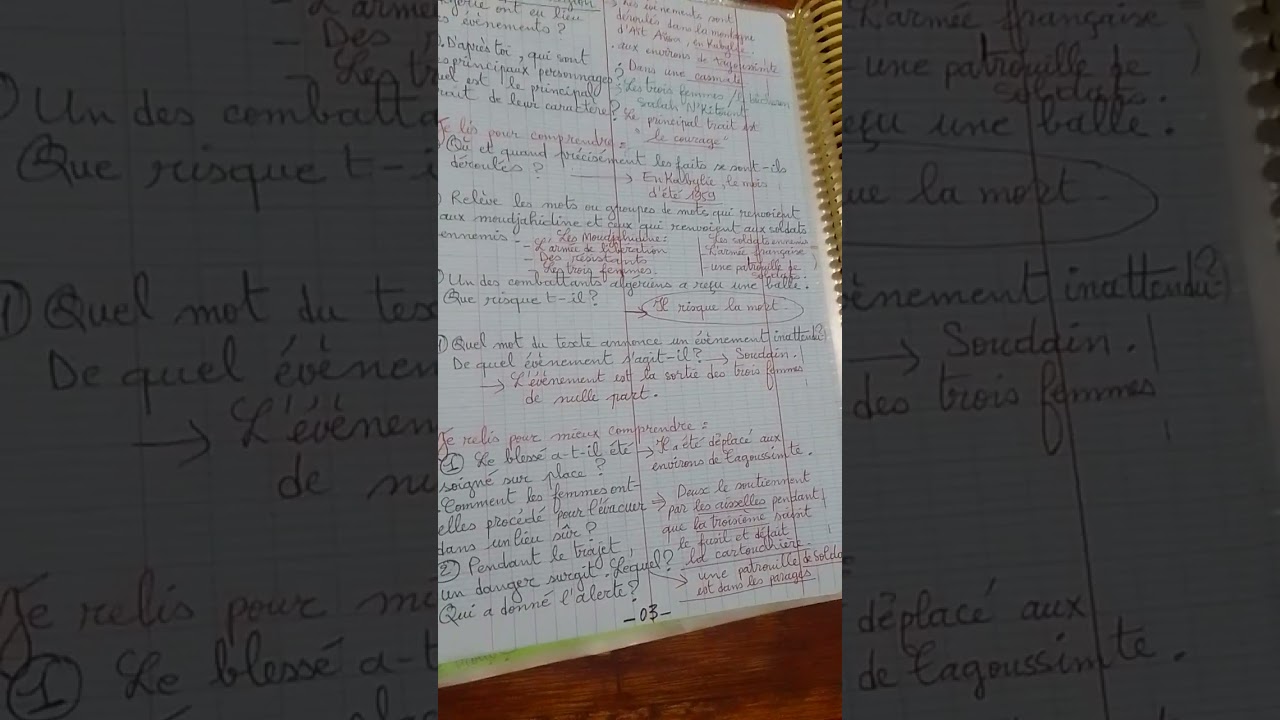 ont eu lieu
évènements ?
→ Les évènements sont
déroulés dans la montagne
en Kabylie.
aux environs de Tagoussimte
D'après toi, qui sont
principaux personnages ?
Dans une casmate
est le principal
trait de leur caractère ?
Les trois femmes
Salah N'Kitount
Le principal trait est
"le courage"
Je lis pour comprendre =
Où et quand précisément les faits se sont-ils
déroulés ?
→ En Kalbylie, le mois
d'été 1959
Relève les mots ou groupes de mots qui renvoient
aux moudjahidine et ceux qui renvoient aux soldats
ennemis -
Les Moudjahidine :
- L'armée de libération
- Des résistants
- Les trois femmes.
Les soldats ennemis
- L'armée française
- une patrouille de
soldats.
Un des combattants algeriens a reçu une balle.
Que risque t-il ?
→ Il risque la mort -
Quel mot du texte annonce un évènement inattendu ?
De quel évènement s'agit-il ? → Soudain.
→ L'évènement est la sortie des trois femmes
de nulle part.
Je relis pour mieux comprendre =
① Le blessé a-t-il été
soigné sur place ?
→ Il a été déplacé aux
environs de Tagoussimte.
Comment les femmes ont-
elles procédé pour l'évacuer
dans un lieu sûr ?
→ Deux le soutiennent
par les aisselles pendant
que la troisième saisit
le fusil et défait
la cartouchière.
② Pendant le trajet,
un danger surgit. Lequel ?
Qui a donné l'alerte ?
→ une patrouille de solda
est dans les parages
- 03 -